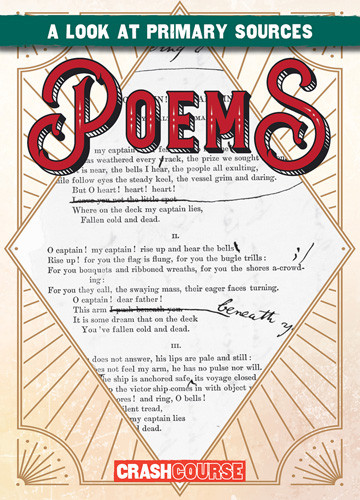 A LOOK AT PRIMARY SOURCES
POEMS
my captain
was weathered every rack, the prize we sought
is near, the bells I hear, the people all exulting,
follow eyes the steady keel, the vessel grim and daring.
But O heart! heart! heart!
Leave you not the little spot
Where on the deck my captain lies,
Fallen cold and dead.
II.
O captain! my captain! rise up and hear the bells
Rise up! for you the flag is flung, for you the bugle trills:
For you bouquets and ribboned wreaths, for you the shores a-crowd-
ing:
For you they call, the swaying mass, their eager faces turning.
O captain! dear father!
This arm I push beneath you beneath y
It is some dream that on the deck
You 've fallen cold and dead.
III.
does not answer, his lips are pale and still:
es not feel my arm, he has no pulse nor will.
The ship is anchored safe, its voyage closed
the victor ship comes in with object
ores! and ring, O bells!
lent tread,
my captain lies
d dead.
CRASHCOURSE